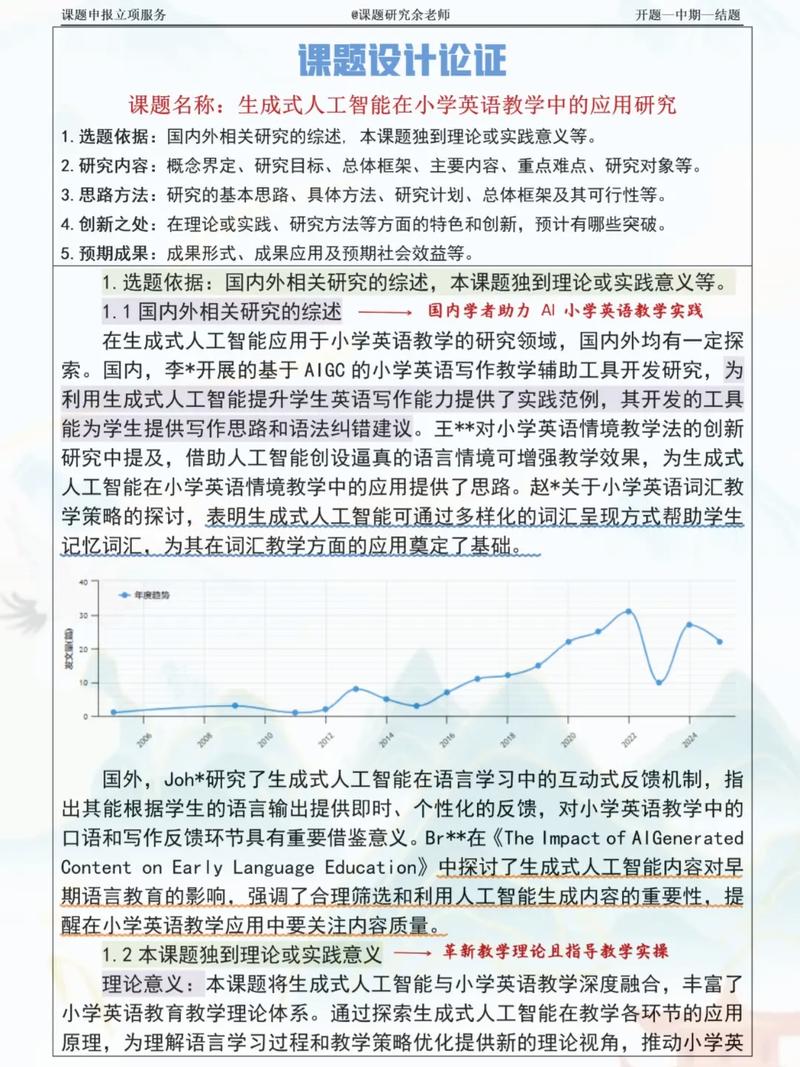 课题申报立项服务 @课题研究余老师 开题—中期—结题
课题设计论证
课题名称：生成式人工智能在小学英语教学中的应用研究
1.选题依据：国内外相关研究的综述，本课题独到理论或实践意义等。
2.研究内容：概念界定、研究目标、总体框架、主要内容、重点难点、研究对象等。
3.思路方法：研究的基本思路、具体方法、研究计划、总体框架及其可行性等。
4.创新之处：在理论或实践、研究方法等方面的特色和创新，预计有哪些突破。
5.预期成果：成果形式、成果应用及预期社会效益等。
1.选题依据：国内外相关研究的综述，本课题独到理论或实践意义等。
1.1 国内外相关研究的综述 国内学者助力 AI 小学英语教学实践
在生成式人工智能应用于小学英语教学的研究领域，国内外均有一定探
索。国内，李*开展的基于 AIGC 的小学英语写作教学辅助工具开发研究，为
利用生成式人工智能提升学生英语写作能力提供了实践范例，其开发的工具
能为学生提供写作思路和语法纠错建议。王**对小学英语情境教学法的创新
研究中提及，借助人工智能创设逼真的语言情境可增强教学效果，为生成式
人工智能在小学英语情境教学中的应用提供了思路。赵*关于小学英语词汇教
学策略的探讨，表明生成式人工智能可通过多样化的词汇呈现方式帮助学生
记忆词汇，为其在词汇教学方面的应用奠定了基础。
年度趋势
发文量(篇)
40
30
20
10
0
2006 2008 2010 2012 2014 2016 2018 2020 2022 2024
国外，Joh*研究了生成式人工智能在语言学习中的互动式反馈机制，指
出其能根据学生的语言输出提供即时、个性化的反馈，对小学英语教学中的
口语和写作反馈环节具有重要借鉴意义。Br**在《The Impact of AIGenerated
Content on Early Language Education》中探讨了生成式人工智能内容对早
期语言教育的影响，强调了合理筛选和利用人工智能生成内容的重要性，提
醒在小学英语教学应用中要关注内容质量。
1.2 本课题独到理论或实践意义 革新教学理论且指导教学实操
理论意义：本课题将生成式人工智能与小学英语教学深度融合，丰富了
小学英语教育教学理论体系。通过探索生成式人工智能在教学各环节的应用
原理，为理解语言学习过程和教学策略优化提供新的理论视角，推动小学英